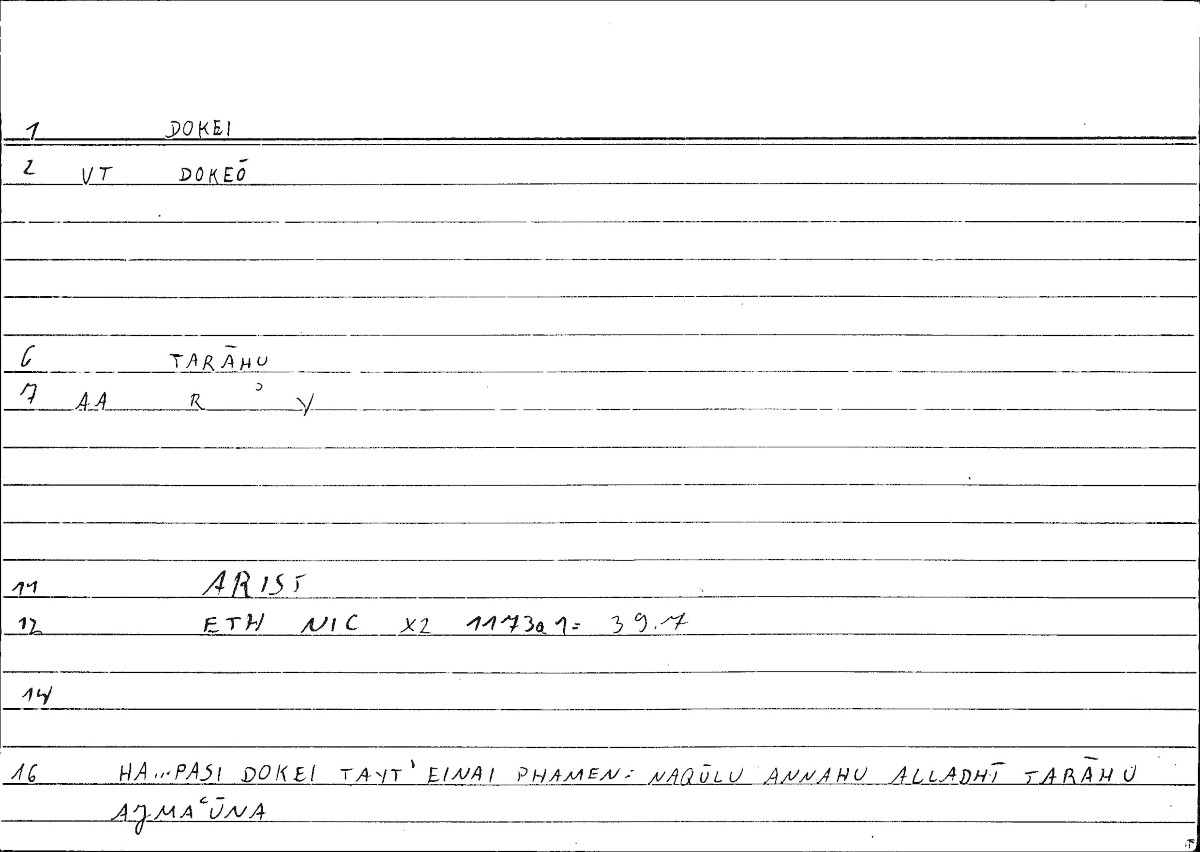 1 DOKEI
2 VT DOKEŌ
6 TARĀHU
7 AA R ʾ Y
11 ARIST
12 ETH NIC X2 1173a1= 39.7
14
16 HA...PASI DOKEI TAYT' EINAI PHAMEN: NAQŪLU ANNAHU ALLADHĪ TARĀHU
AJMAʿŪNA